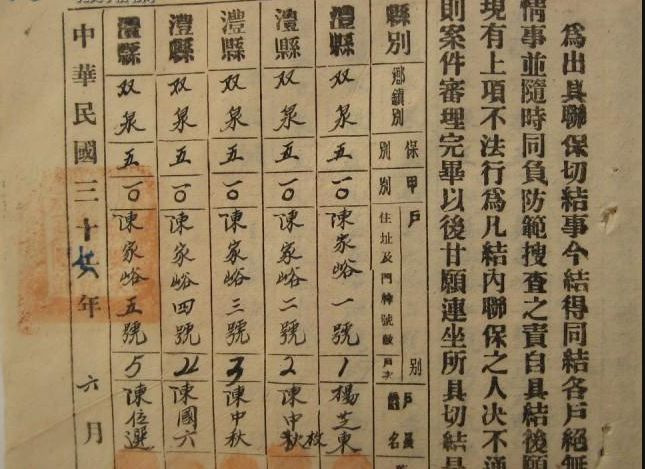 為出具聯保切結事今結得同結各戶絕無
情事並隨時同負防範搜查之責自具結後願
現有上項不法行為凡結內聯保之人决不
則案件審理完畢以後甘願連坐所具切結是
縣別 鄉鎮別 保別 甲別 戶別 住址及門牌號數 戶次 戶長姓名
澧縣 双泉 五 一〇 陳家峪一號 1 楊芝東
澧縣 双泉 五 一〇 陳家峪二號 2 陳中秋 枚
澧縣 双泉 五 一〇 陳家峪三號 3 陳中秋
澧縣 双泉 五 一〇 陳家峪四號 4 陳國六
澧縣 双泉 五 一〇 陳家峪五號 5 陳位選
中華民國三十六年 六月